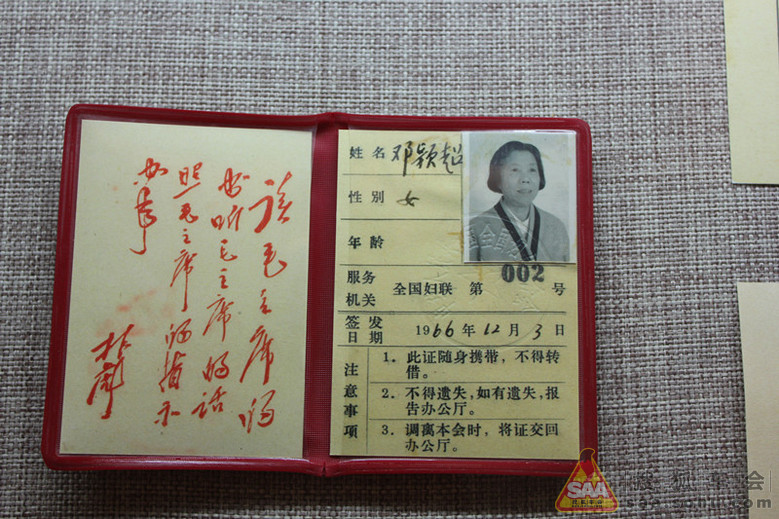 读毛主席的
书听毛主席的话
照毛主席的指示
办事
林彪
姓名 邓颖超
性别 女
年龄
服务机关 全国妇联 第 002 号
签发日期 1966 年 12 月 3 日
注意事项
1. 此证随身携带，不得转
借。
2. 不得遗失，如有遗失，报
告办公厅。
3. 调离本会时，将证交回
办公厅。
SAA